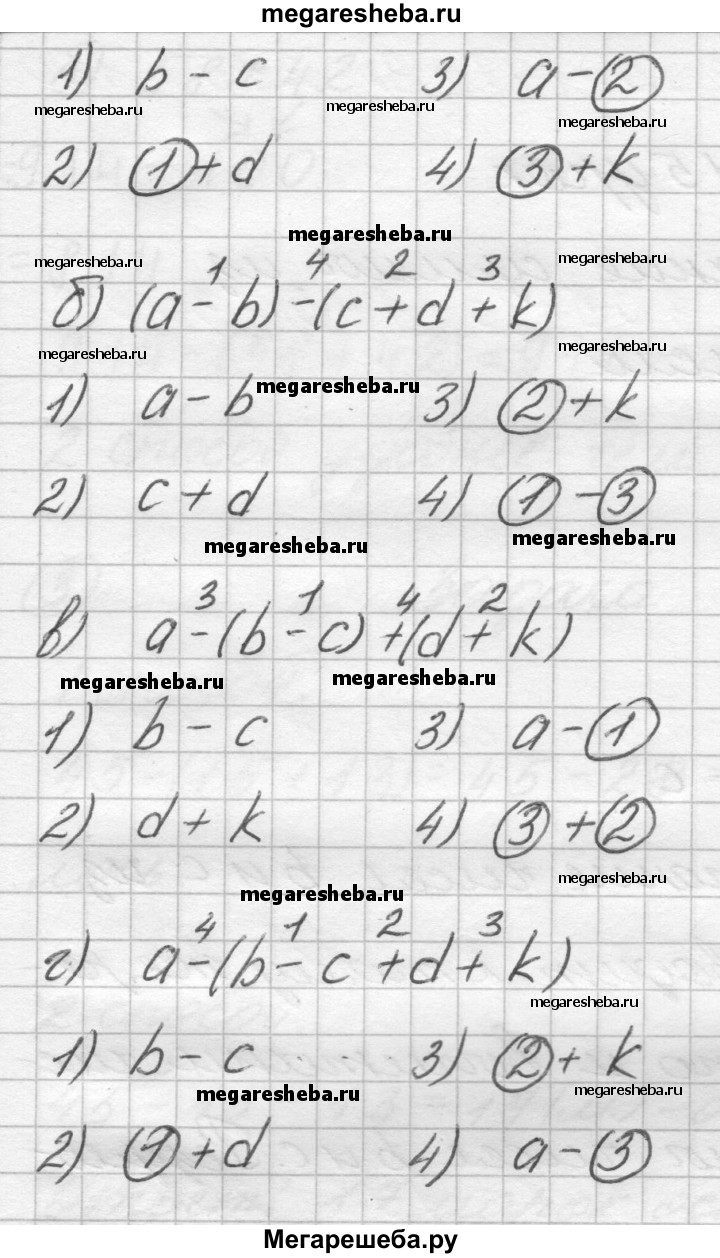 megaresheba.ru
1) b - c 3) a - ②
megaresheba.ru megaresheba.ru megaresheba.ru
2) ① + d 4) ③ + k
megaresheba.ru
megaresheba.ru megaresheba.ru
1 4 2 3
б) (a - b) - (c + d + k)
megaresheba.ru megaresheba.ru
1) a - b megaresheba.ru 3) ② + k
2) c + d 4) ① - ③
megaresheba.ru megaresheba.ru
3 1 4 2
в) a - (b - c) + (d + k)
megaresheba.ru megaresheba.ru
1) b - c 3) a - ①
2) d + k 4) ③ + ②
megaresheba.ru megaresheba.ru
4 1 2 3
г) a - (b - c + d + k)
megaresheba.ru
1) b - c 3) ② + k
megaresheba.ru megaresheba.ru
2) ① + d 4) a - ③
Мегарешеба.ру